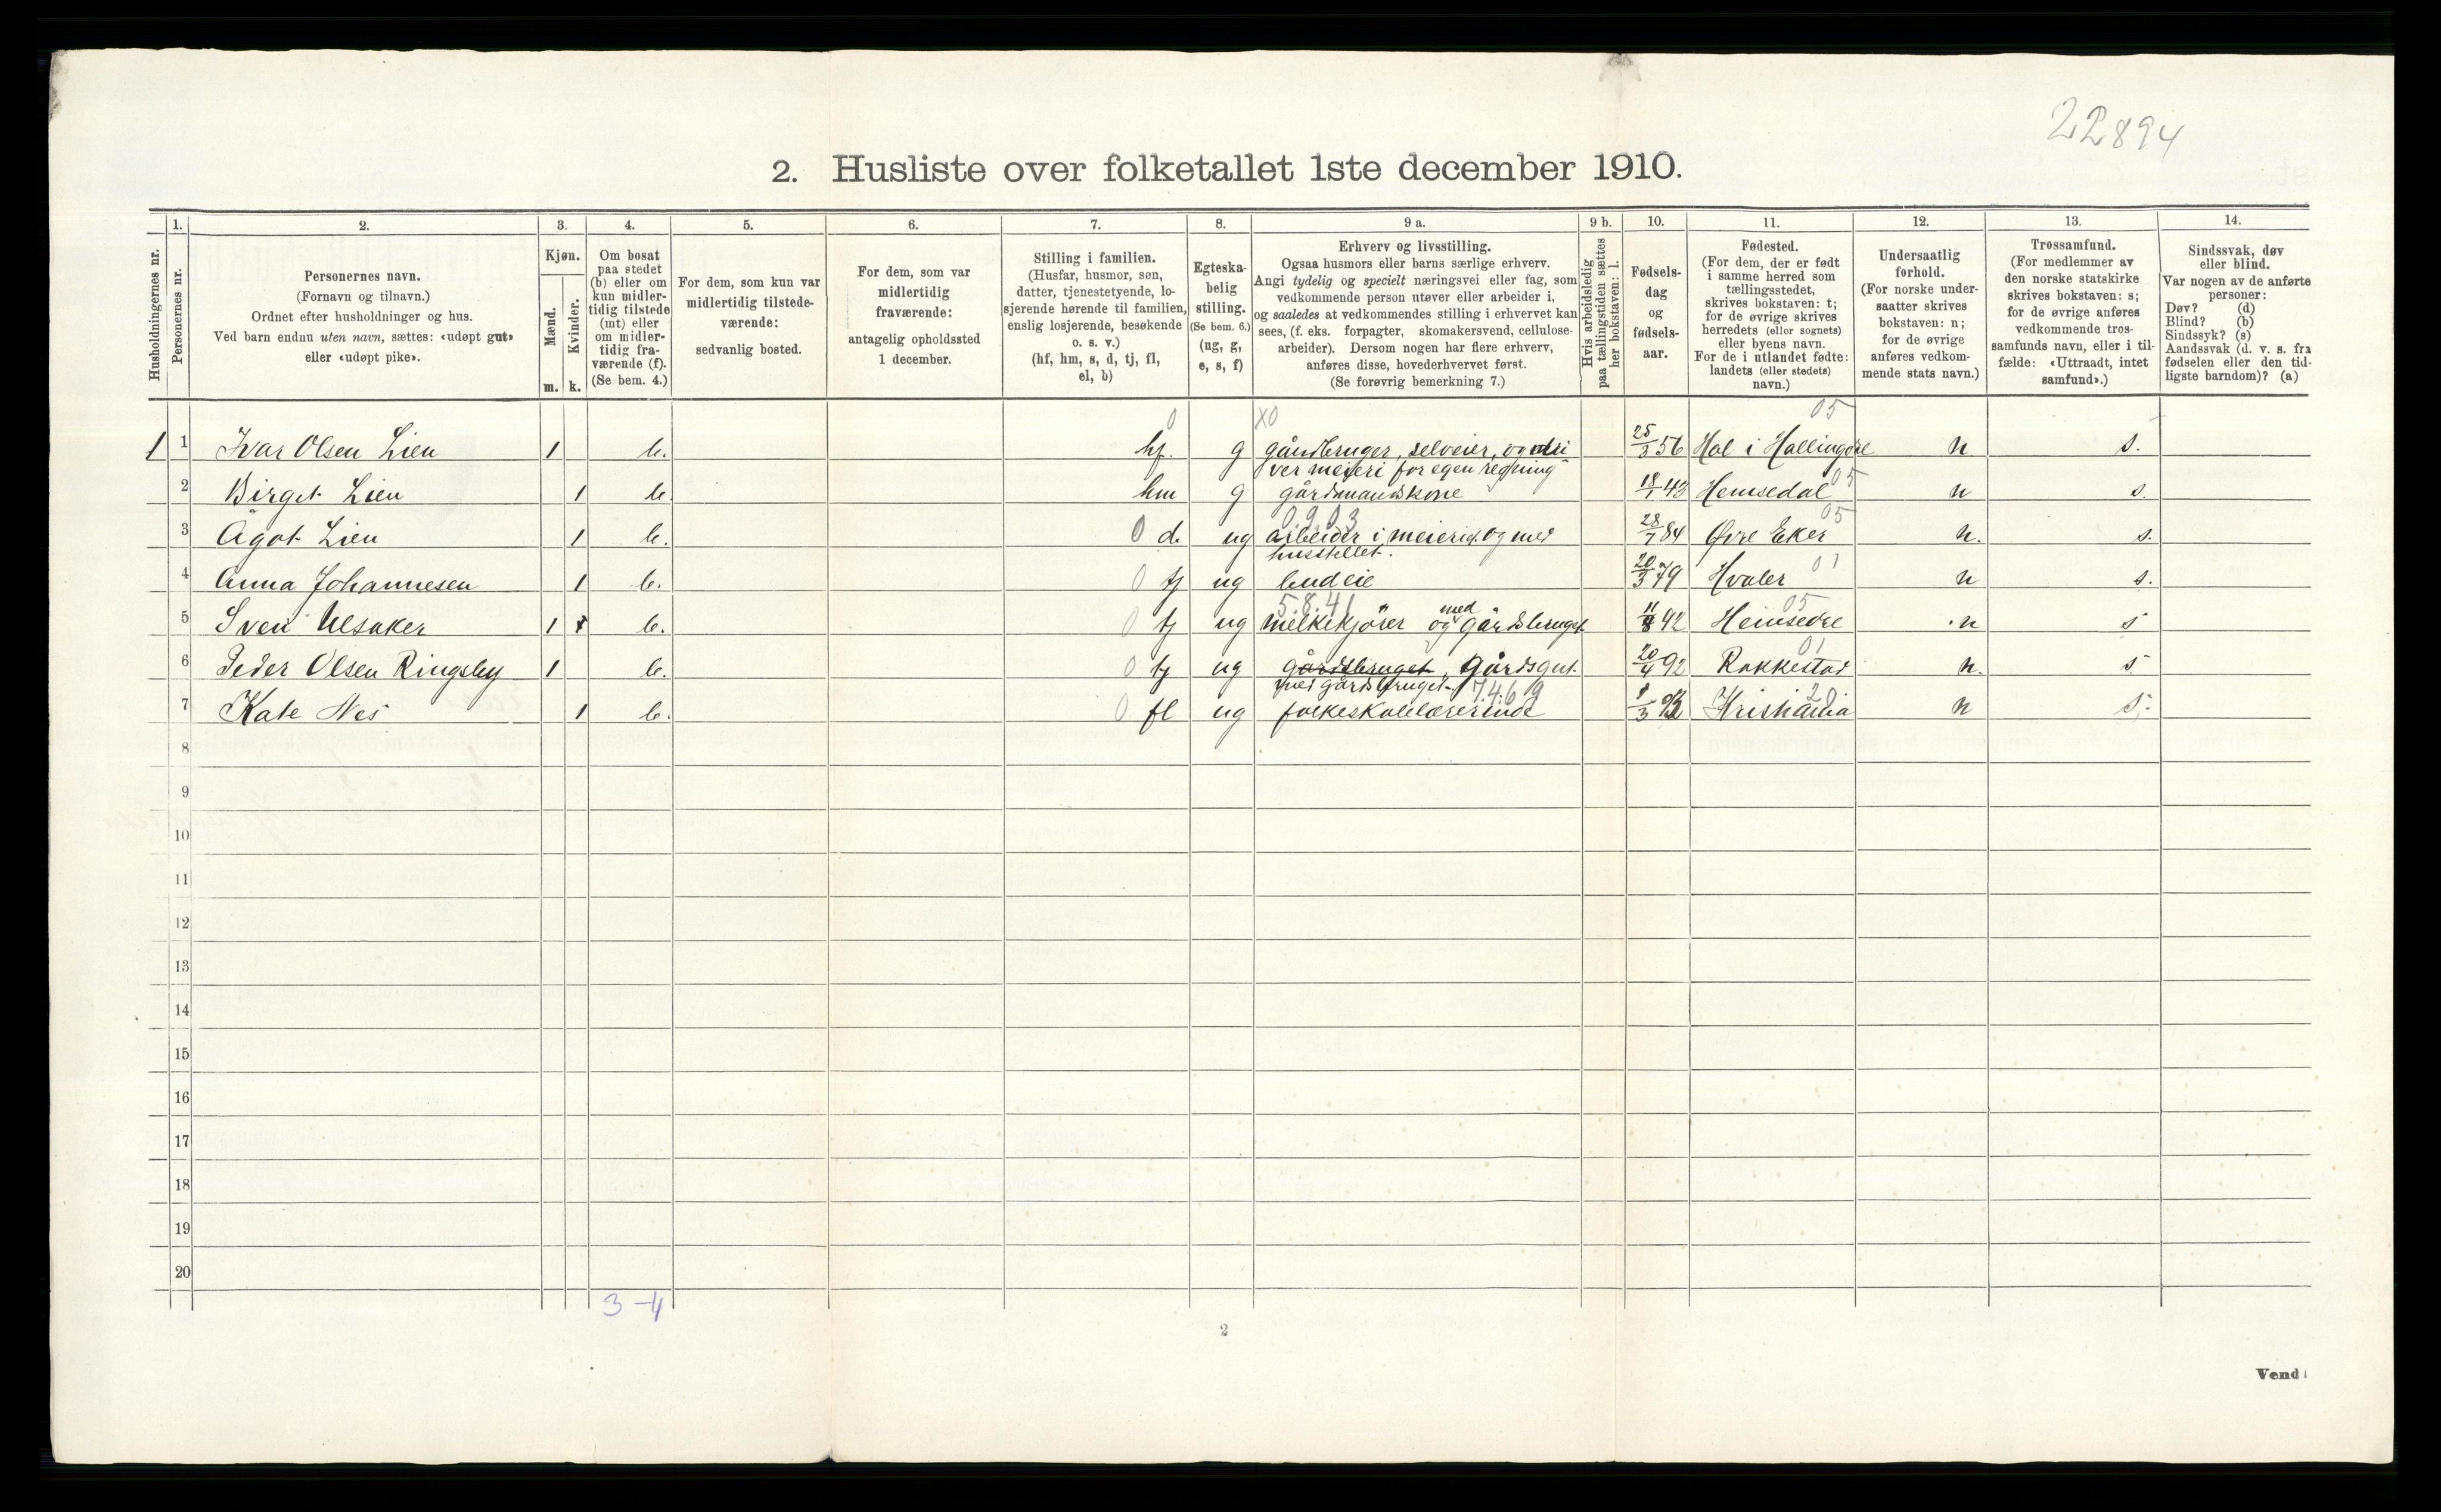 22894
2. Husliste over folketallet 1ste december 1910.
Husholdningernes nr.
1. Personernes nr.
2. Personernes navn.
(Fornavn og tilnavn.)
Ordnet efter husholdninger og hus.
Ved barn endnu uten navn, sættes: «udøpt gut»
eller «udøpt pike».
3. Kjøn.
Mænd. m.
Kvinder. k.
4. Om bosat
paa stedet
(b) eller om
kun midler-
tidig tilstede
(mt) eller
om midler-
tidig fra-
værende (f).
(Se bem. 4.)
5. For dem, som kun var
midlertidig tilstede-
værende:
sedvanlig bosted.
6. For dem, som var
midlertidig
fraværende:
antagelig opholdssted
1 december.
7. Stilling i familien.
(Husfar, husmor, søn,
datter, tjenestetyende, lo-
sjerende hørende til familien,
enslig losjerende, besøkende
o. s. v.)
(hf, hm, s, d, tj, fl,
el, b)
8. Egteska-
belig
stilling.
(Se bem. 6.)
(ug, g,
e, s, f)
9 a. Erhverv og livsstilling.
Ogsaa husmors eller barns særlige erhverv.
Angi tydelig og specielt næringsvei eller fag, som
vedkommende person utøver eller arbeider i,
og saaledes at vedkommendes stilling i erhvervet kan
sees, (f. eks. forpagter, skomakersvend, cellulose-
arbeider). Dersom nogen har flere erhverv,
anføres disse, hovederhvervet først.
(Se forøvrig bemerkning 7.)
9 b. Hvis arbeidsledig
paa tællingstiden sættes
her bokstaven: l.
10. Fødsels-
dag
og
fødsels-
aar.
11. Fødested.
(For dem, der er født
i samme herred som
tællingsstedet,
skrives bokstaven: t;
for de øvrige skrives
herredets (eller sognets)
eller byens navn.
For de i utlandet fødte:
landets (eller stedets)
navn.)
12. Undersaatlig
forhold.
(For norske under-
saatter skrives
bokstaven: n;
for de øvrige
anføres vedkom-
mende stats navn.)
13. Trossamfund.
(For medlemmer av
den norske statskirke
skrives bokstaven: s;
for de øvrige anføres
vedkommende tros-
samfunds navn, eller i til-
fælde: «Uttraadt, intet
samfund».)
14. Sindssvak, døv
eller blind.
Var nogen av de anførte
personer:
Døv? (d)
Blind? (b)
Sindssyk? (s)
Aandssvak (d. v. s. fra
fødselen eller den tid-
ligste barndom)? (a)
0 X0 05
1 1 Ivar Olsen Lien 1 b. hf. g gårdbruger, selveier, og dri 25/3 56 Hol i Hallingdre n s.
ver meieri for egen regning
2 Birget Lien 1 b. hm g gårdmandskone 18/1 43 Hemsedal 05 n s.
0.9.03 05
3 Ågot Lien 1 b. 0 d. ug arbeider i meieriet og med 28/7 84 Øvre Eker n. s.
husstellet.
4 Anna Johannesen 1 b. 0 tj ug budeie 20/3 79 Hvaler 01 n s.
5.8.41 med 05
5 Sven Ulsaker 1 b. 0 tj ug melkekjörer og gårdsbruget 92 Hemsedre n s
01
6 Peder Olsen Ringsby 1 b. 0 tj ug gårdsbruget, Gårdsgut 20/4 92 Rakkestad n. s
med gårdsbruget. 7.4.6.19
7 Kate Nes 1 b. 0 fl ug folkeskolelærerinde Kristiania 20 n s.
8
9
10
11
12
13
14
15
16
17
18
19
20
3-4
2
Vend